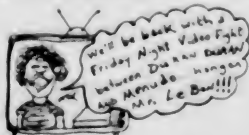 We'll be back with a
Friday Night Video Fight
between Duran Duran
and Menudo
Mr. Le Bon!!!